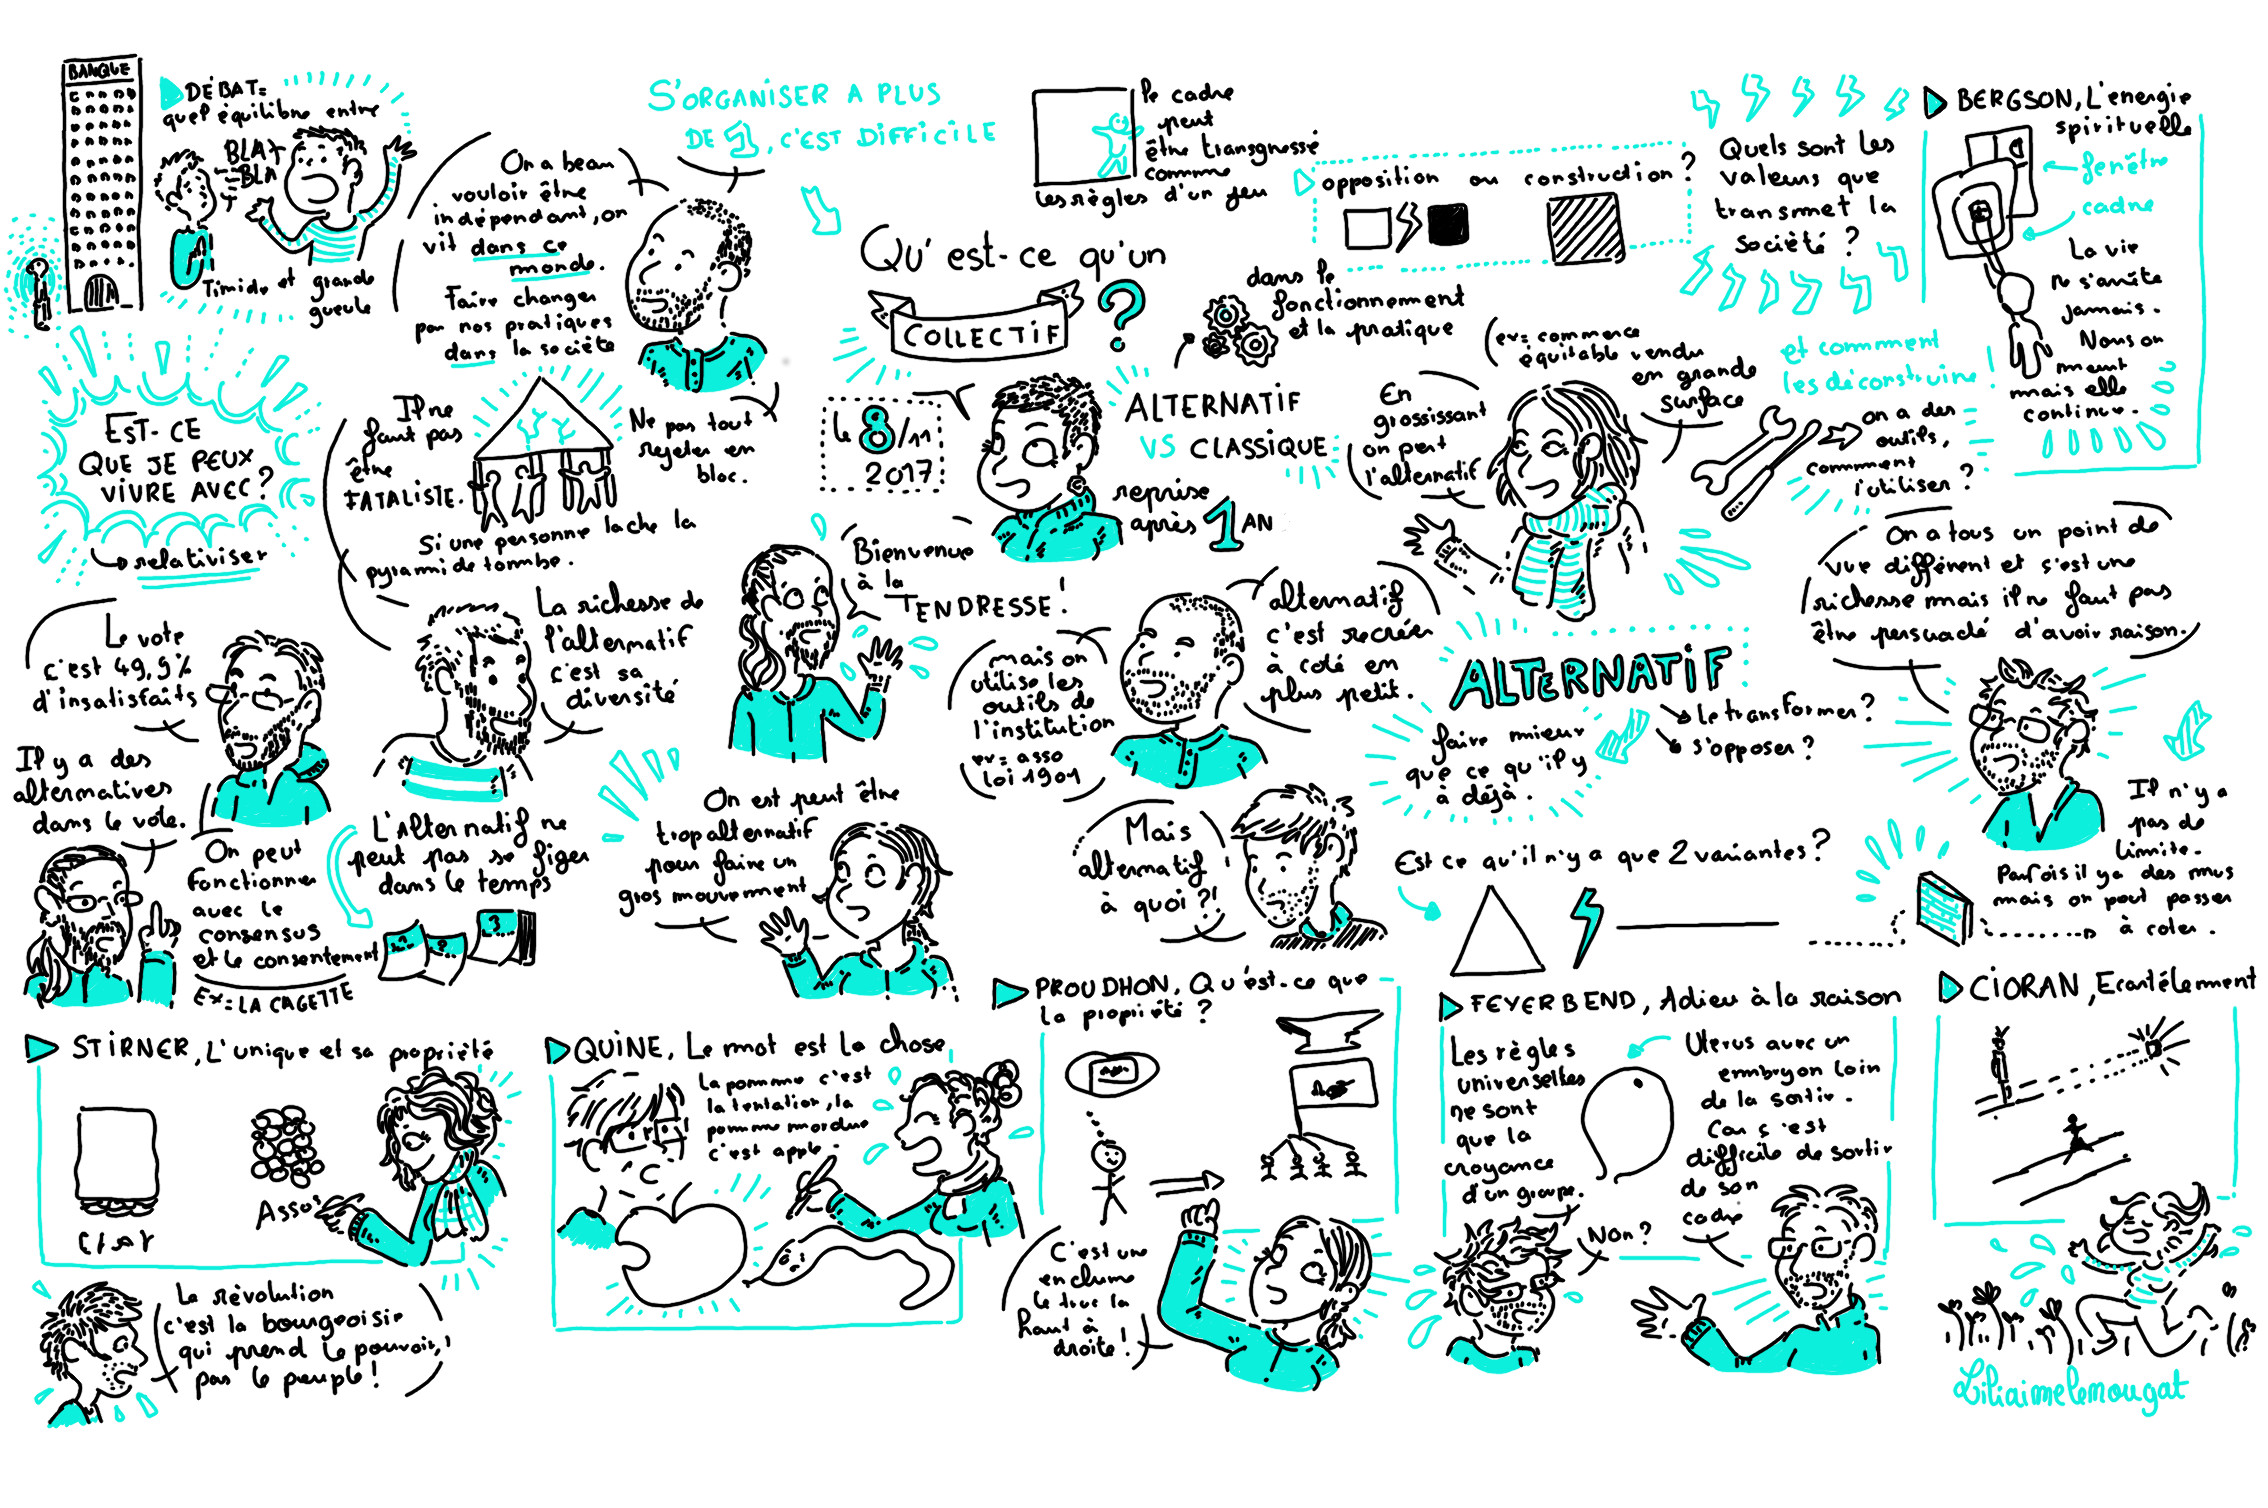 BANQUE
DÉBAT=
quel équilibre entre
BLA
BLA
Timide et grande
gueule
On a beau
vouloir être
indépendant, on
vit dans ce
monde.
Faire changer
par nos pratiques
dans la société
S'ORGANISER A PLUS
DE 1, C'EST DIFFICILE
Ne pas tout
rejeter en
bloc.
Qu'est-ce qu'un
COLLECTIF ?
le 8/11
2017
ALTERNATIF
VS CLASSIQUE
reprise
après 1 AN
le cadre
peut
être transgressé
comme
les règles d'un jeu
opposition ou construction ?
dans le
fonctionnement
et la pratique
Quels sont les
valeurs que
transmet la
société ?
et comment
les déconstruire !
on a des
outils,
comment
l'utiliser ?
BERGSON, L'énergie
spirituelle
fenêtre
cadre
La vie
ne s'arrête
jamais.
Nous on
meurt
mais elle
continue.
EST-CE
QUE JE PEUX
VIVRE AVEC ?
relativiser
Il ne
faut pas
être
FATALISTE.
Si une personne lache la
pyramide tombe.
En
grossissant
on perd
l'alternatif
(ex= commerce
équitable vendu
en grande
surface
On a tous un point de
vue différent et c'est une
richesse mais il ne faut pas
être persuadé d'avoir raison.
Le vote
c'est 49,9%
d'insatisfaits
Il y a des
alternatives
dans le vote.
On peut
fonctionner
avec le
consensus
et le consentement
Ex= LA CAGETTE
La richesse de
l'alternatif
c'est sa
diversité
L'Alternatif ne
peut pas se figer
dans le temps
1
2
3
Bienvenue
à la
TENDRESSE !
mais on
utilise les
outils de
l'institution
ex= asso
loi 1901
alternatif
c'est recréer
à coté en
plus petit.
ALTERNATIF
le transformer ?
s'opposer ?
faire mieux
que ce qu'il y
a déjà.
On est peut être
trop alternatif
pour faire un
gros mouvement
Mais
alternatif
à quoi ?!
Est ce qu'il n'y a que 2 variantes ?
Il n'y a
pas de
limite.
Parfois il y a des murs
mais on peut passer
à coter.
STIRNER, L'unique et sa propriété
Asso
La révolution
c'est la bourgeoisie
qui prend le pouvoir,
pas le peuple !
QUINE, Le mot est la chose
La pomme c'est
la tentation, la
pomme mordue
c'est apple.
PROUDHON, Qu'est-ce que
la propriété ?
C'est une
enclume
le truc la
haut à
droite !
FEYERBEND, Adieu à la raison
Les règles
universelles
ne sont
que la
croyance
d'un groupe.
Non ?
Uterus avec un
embryon loin
de la sortie.
Car c'est
difficile de sortir
de son
cadre
CIORAN, Ecartélement
Liliaimelenougat